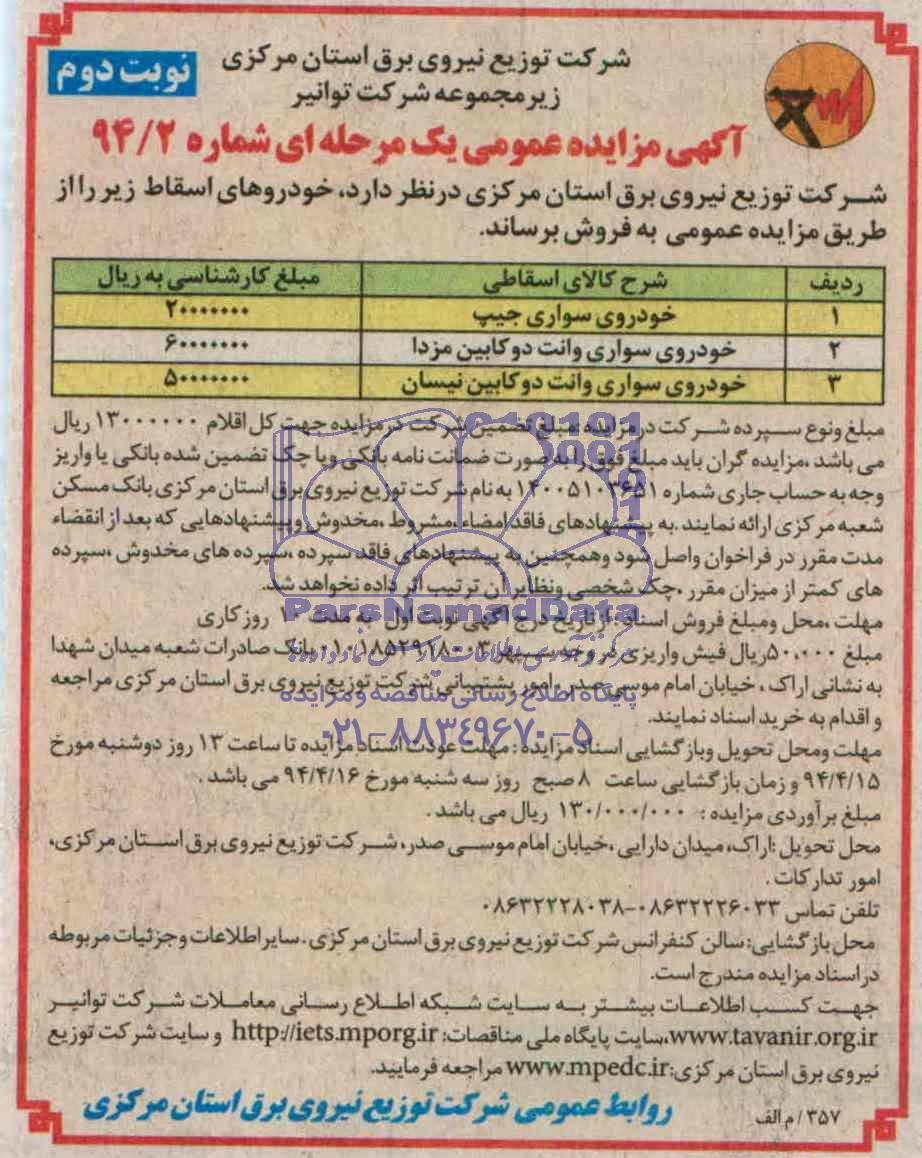 شرکت توزیع نیروی برق استان مرکزی
نوبت دوم
زیرمجموعه شرکت توانیر
آگهی مزایده عمومی یک مرحله ای شماره ۹۴/۲
شرکت توزیع نیروی برق استان مرکزی درنظر دارد، خودروهای اسقاط زیر را از
طریق مزایده عمومی به فروش برساند.
ردیف شرح کالای اسقاطی مبلغ کارشناسی به ریال
۱ خودروی سواری جیپ ۲۰۰۰۰۰۰۰
۲ خودروی سواری وانت دوکابین مزدا ۶۰۰۰۰۰۰۰
۳ خودروی سواری وانت دوکابین نیسان ۵۰۰۰۰۰۰۰
مبلغ ونوع سپرده شرکت درمزایده :مبلغ تضمین شرکت درمزایده جهت کل اقلام ۱۳۰۰۰۰۰۰ ریال
می باشد ،مزایده گران باید مبلغ فوق را به صورت ضمانت نامه بانکی ویا چک تضمین شده بانکی یا واریز
وجه به حساب جاری شماره ۱۴۰۰۵۱۰۳۶۵۱ به نام شرکت توزیع نیروی برق استان مرکزی بانک مسکن
شعبه مرکزی ارائه نمایند .به پیشنهادهای فاقد امضاء ،مشروط ،مخدوش وپیشنهادهایی که بعد از انقضاء
مدت مقرر در فراخوان واصل شود وهمچنین به پیشنهادهای فاقد سپرده ،سپرده های مخدوش ،سپرده
های کمتر از میزان مقرر ،چک شخصی ونظایر آن ترتیب اثر داده نخواهد شد.
ParsNamadData
مهلت ،محل ومبلغ فروش اسناد :ازتاریخ درج آگهی نوبت اول به مدت ۱۰ روزکاری
مبلغ ۵۰،۰۰۰ریال فیش واریزی در وجه سپهر بانک صادرات شعبه میدان شهدا
به نشانی اراک ، خیابان امام موسی صدر ،امور پشتیبانی شرکت توزیع نیروی برق استان مرکزی مراجعه
پایگاه اطلاع رسانی مناقصه و مزایده
و اقدام به خرید اسناد نمایند.
۰۲۱-۸۸۳۴۹۶۷۰-۵
مهلت ومحل تحویل وبازگشایی اسناد مزایده : مهلت عودت اسناد مزایده تا ساعت ۱۳ روز دوشنبه مورخ
۹۴/۴/۱۵ و زمان بازگشایی ساعت ۸ صبح روز سه شنبه مورخ ۹۴/۴/۱۶ می باشد .
مبلغ برآوردی مزایده : ۱۳۰/۰۰۰/۰۰۰ ریال می باشد .
محل تحویل :اراک، میدان دارایی ،خیابان امام موسی صدر، شرکت توزیع نیروی برق استان مرکزی،
امور تدارکات .
تلفن تماس ۰۸۶۳۲۲۲۶۰۳۳-۰۸۶۳۲۲۲۸۰۳۸
محل بازگشایی: سالن کنفرانس شرکت توزیع نیروی برق استان مرکزی . سایر اطلاعات وجزئیات مربوطه
در اسناد مزایده مندرج است.
جهت کسب اطلاعات بیشتر به سایت شبکه اطلاع رسانی معاملات شرکت توانیر
www.tavanir.org.ir،سایت پایگاه ملی مناقصات: http://iets.mporg.ir و سایت شرکت توزیع
نیروی برق استان مرکزی:www.mpedc.ir مراجعه فرمایید.
۳۵۷/ م الف
روابط عمومی شرکت توزیع نیروی برق استان مرکزی